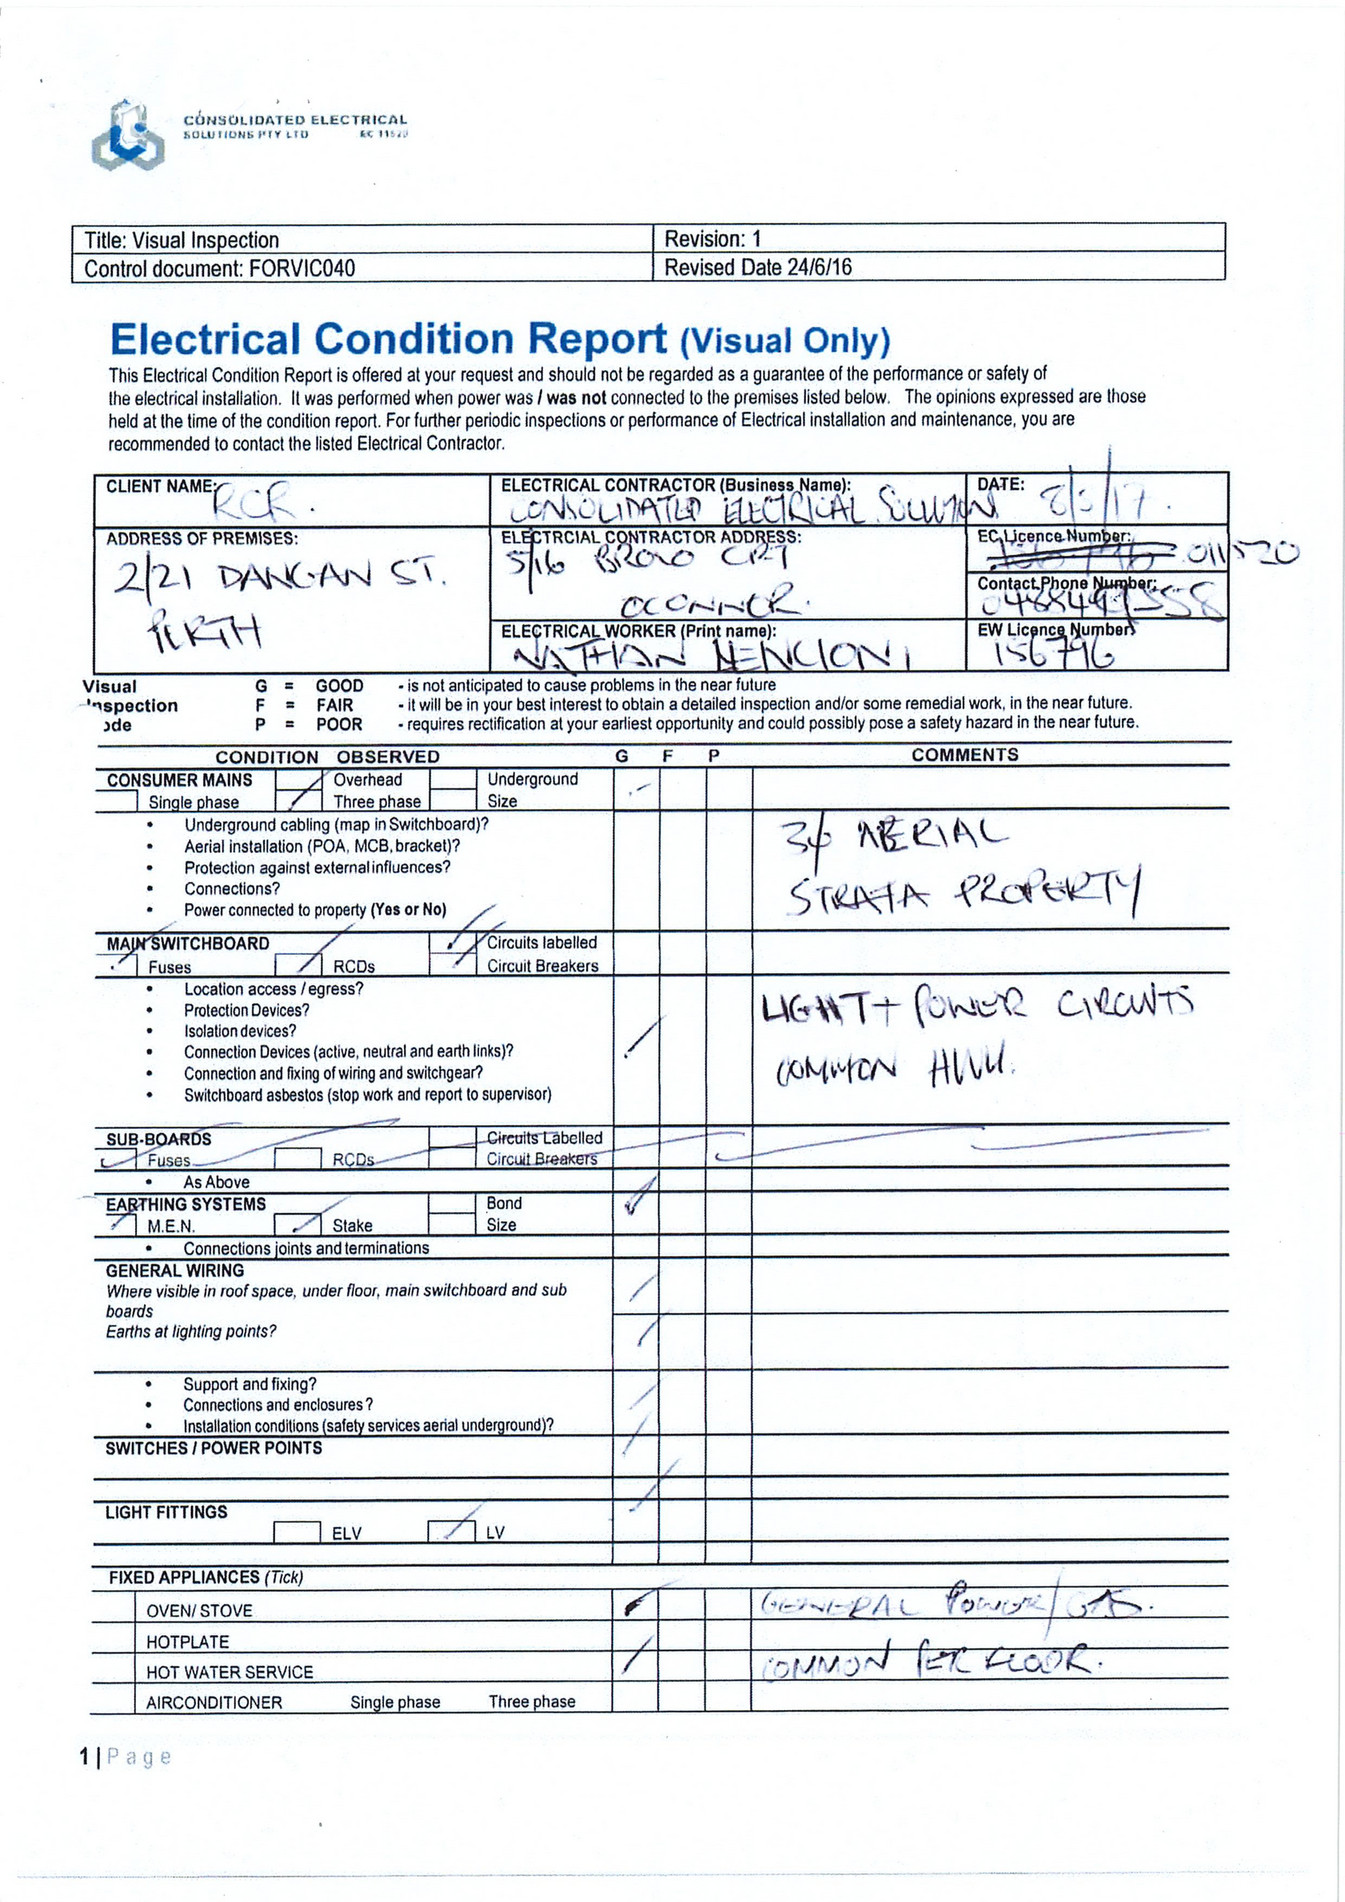 CONSOLIDATED ELECTRICAL
SOLUTIONS PTY LTD EC 11520
Title: Visual Inspection Revision: 1
Control document: FORVIC040 Revised Date 24/6/16
Electrical Condition Report (Visual Only)
This Electrical Condition Report is offered at your request and should not be regarded as a guarantee of the performance or safety of
the electrical installation. It was performed when power was / was not connected to the premises listed below. The opinions expressed are those
held at the time of the condition report. For further periodic inspections or performance of Electrical installation and maintenance, you are
recommended to contact the listed Electrical Contractor.
CLIENT NAME: RCR.
ELECTRICAL CONTRACTOR (Business Name):
CONSOLIDATED ELECTRICAL SOLUTION
DATE: 8/5/17.
ADDRESS OF PREMISES:
2/21 DANGAN ST.
PERTH
ELECTRCIAL CONTRACTOR ADDRESS:
5/16 CRT
OCONNOR.
EC Licence Number:
011520
Contact Phone Number:
ELECTRICAL WORKER (Print name):
NATHAN MENCIONI
EW Licence Number
156796
Visual G = GOOD - is not anticipated to cause problems in the near future
Inspection F = FAIR - it will be in your best interest to obtain a detailed inspection and/or some remedial work, in the near future.
ode P = POOR - requires rectification at your earliest opportunity and could possibly pose a safety hazard in the near future.
CONDITION OBSERVED G F P COMMENTS
CONSUMER MAINS Overhead Underground
Single phase Three phase Size
• Underground cabling (map in Switchboard)?
• Aerial installation (POA, MCB, bracket)?
• Protection against external influences?
• Connections?
• Power connected to property (Yes or No)
3φ AERIAL
STRATA PROPERTY
MAIN SWITCHBOARD Circuits labelled
Fuses RCDs Circuit Breakers
• Location access / egress?
• Protection Devices?
• Isolation devices?
• Connection Devices (active, neutral and earth links)?
• Connection and fixing of wiring and switchgear?
• Switchboard asbestos (stop work and report to supervisor)
LIGHT + POWER CIRCUITS
COMMON HWU.
SUB-BOARDS Circuits Labelled
Fuses RCDs Circuit Breakers
• As Above
EARTHING SYSTEMS Bond
M.E.N. Stake Size
• Connections joints and terminations
GENERAL WIRING
Where visible in roof space, under floor, main switchboard and sub
boards
Earths at lighting points?
• Support and fixing?
• Connections and enclosures?
• Installation conditions (safety services aerial underground)?
SWITCHES / POWER POINTS
LIGHT FITTINGS
ELV LV
FIXED APPLIANCES (Tick)
OVEN/ STOVE GENERAL POWER/GAS.
HOTPLATE
HOT WATER SERVICE COMMON PER FLOOR.
AIRCONDITIONER Single phase Three phase
1 | Page